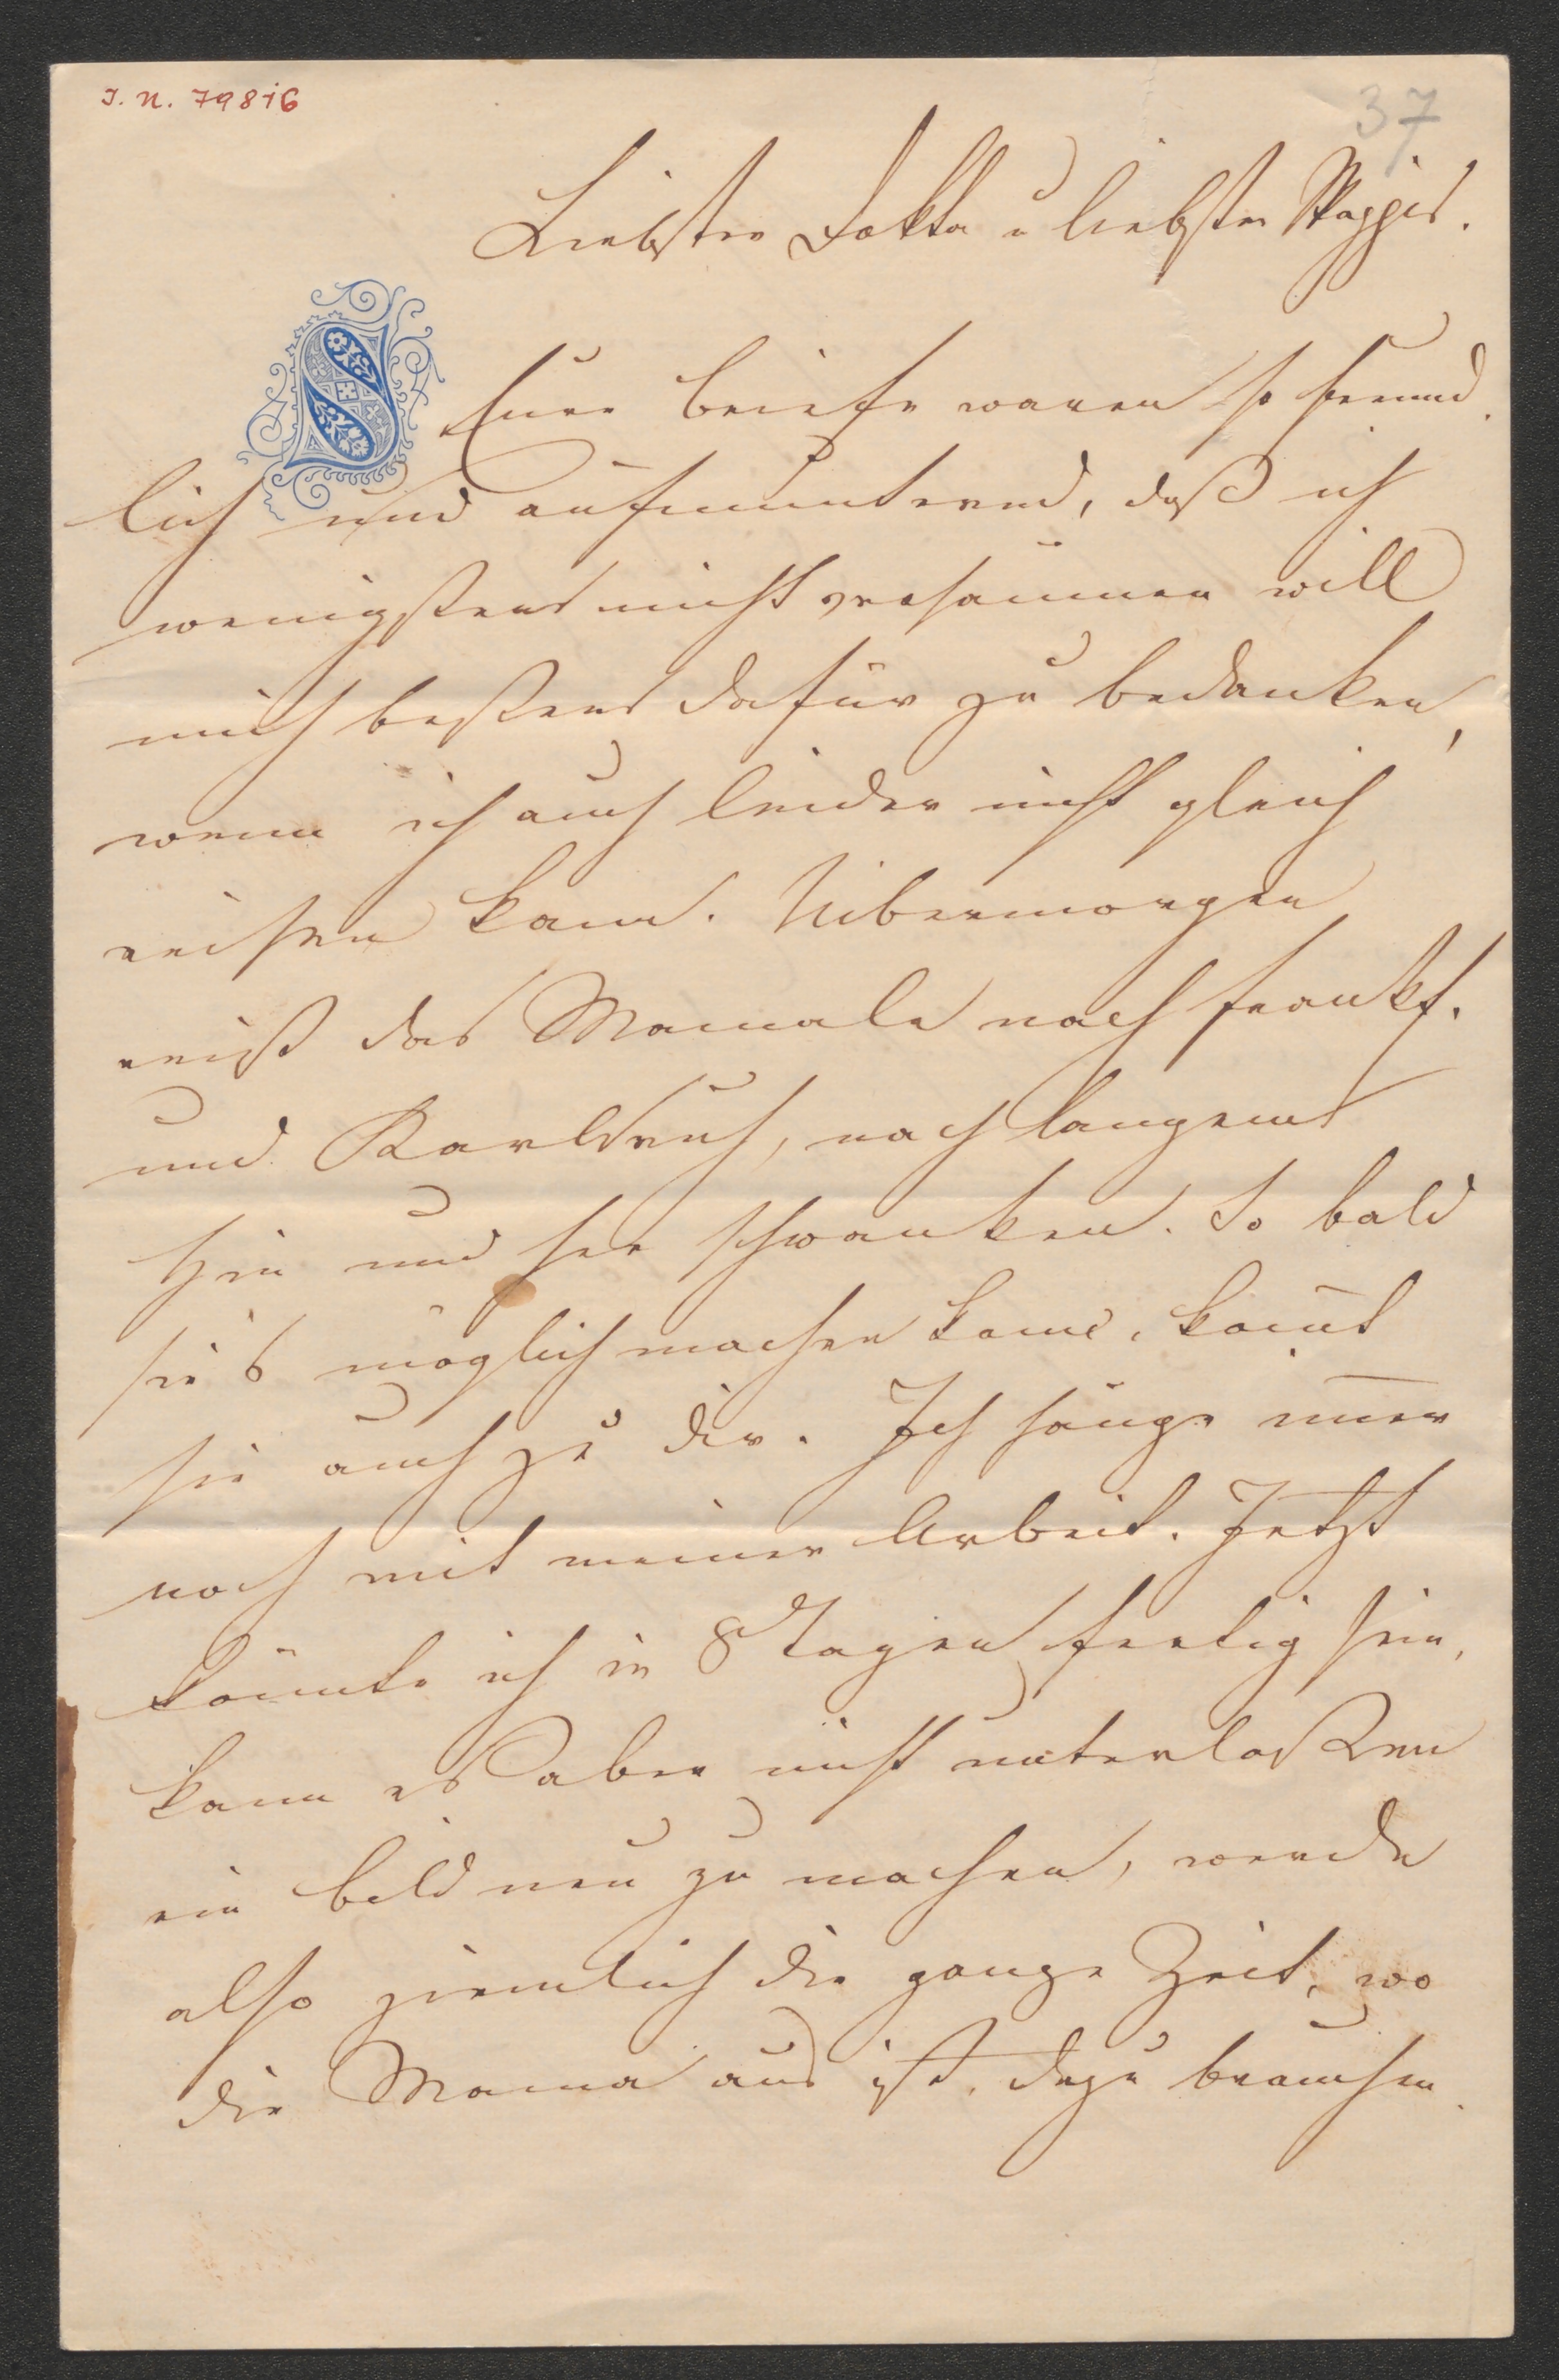 I. N. 79816
37
Liebster Dokta u liebster Noggis.
Eure Briefe waren so freund
lich und aufmunternd, daß ich
wenigstens nicht versäumen will
mich bestens dafür zu bedanken,
wenn ich auch leider nicht gleich
reisen kann. Uibermorgen
reist das Mamale nach Frankf.
und Karlsruh, nach langem
hin und her schwanken. So bald
sie's möglich machen kann, kom̄t
sie auch zu dir. Ich hänge im̄er
noch mit meiner Arbeit. Jetzt
könnte ich in 8 Tagen fertig sein,
kann es aber nicht unterlassen
ein Bild neu zu machen, werde
also ziemlich die ganze Zeit, wo
die Mama aus ist, dazu brauchen.